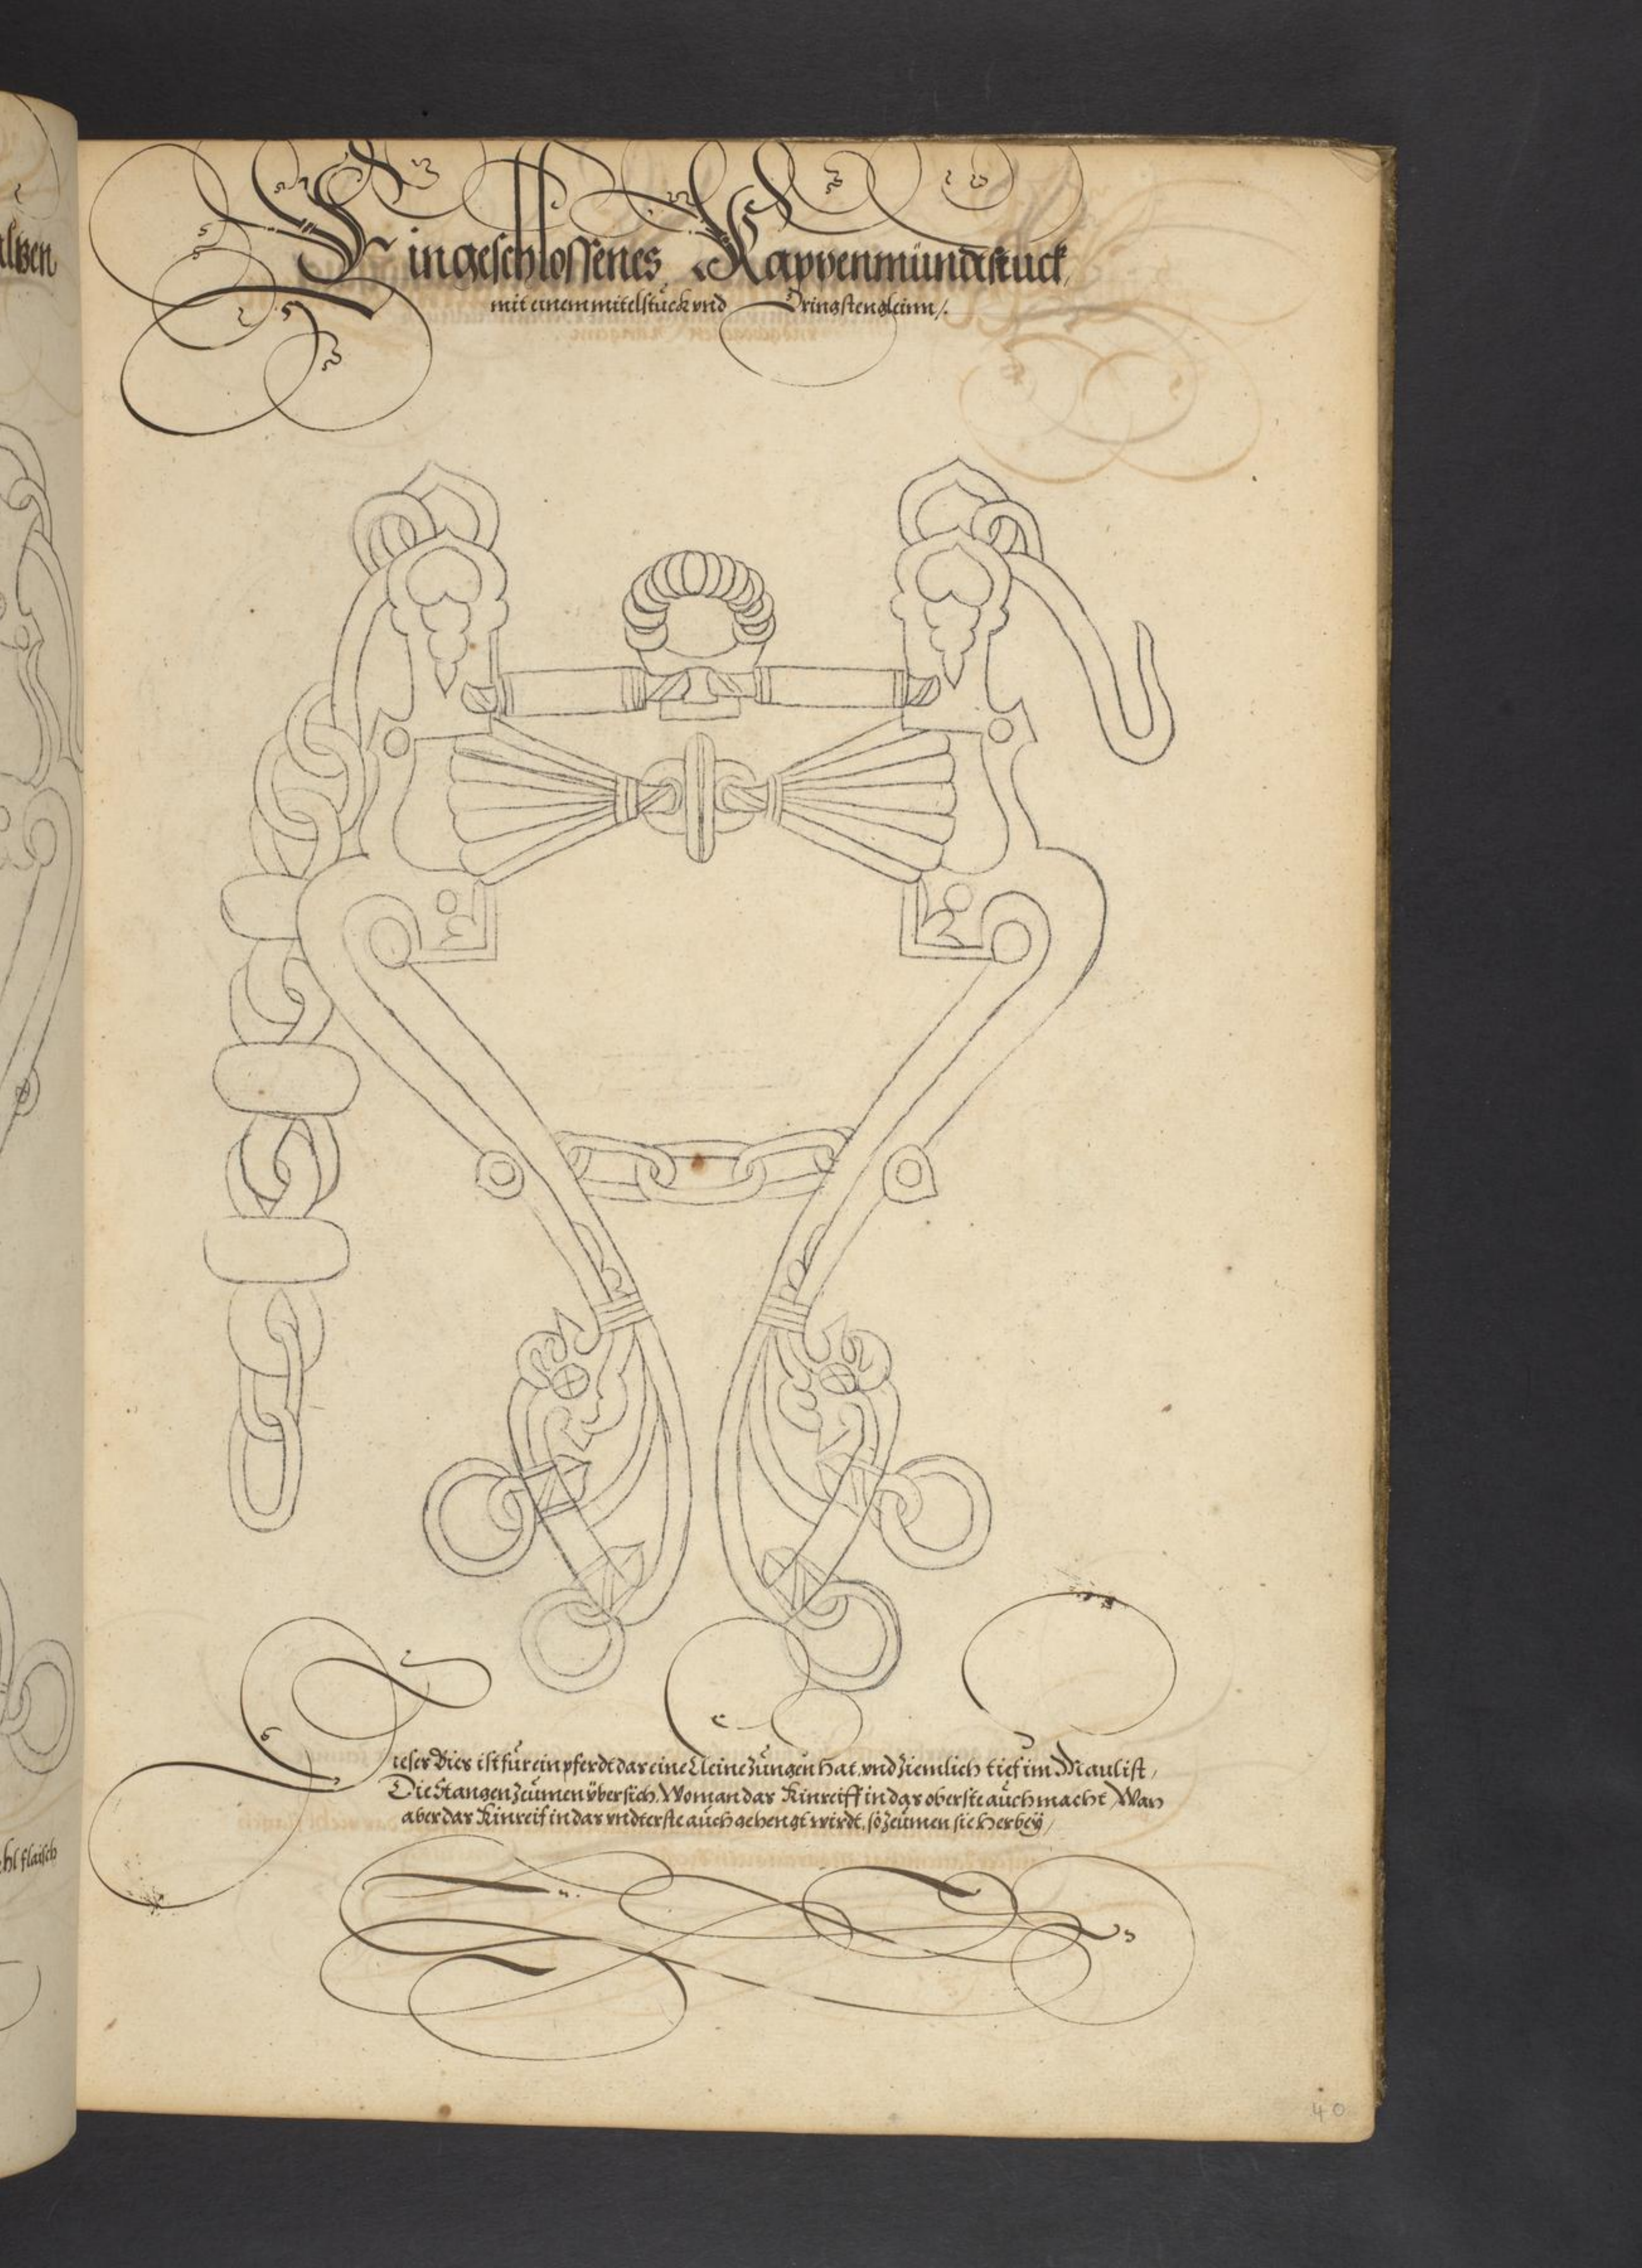 alben
Eingeschlossenes Kappenmündtstuck,
mit einem mitelstück vnd Dringstengleinn /.
Dieser Bies ist für ein pferdt das eine kleine Züngen hat, vnd ziemlich tief im Maul ist /
Die Stangen zeümen übersich, Wo man das Kinreiff in das oberste aüch macht, Wan
aber das Kinreif in das vndterste aüch gehengt wirdt, so zeümen sie herbeÿ /
hl flaisch
40